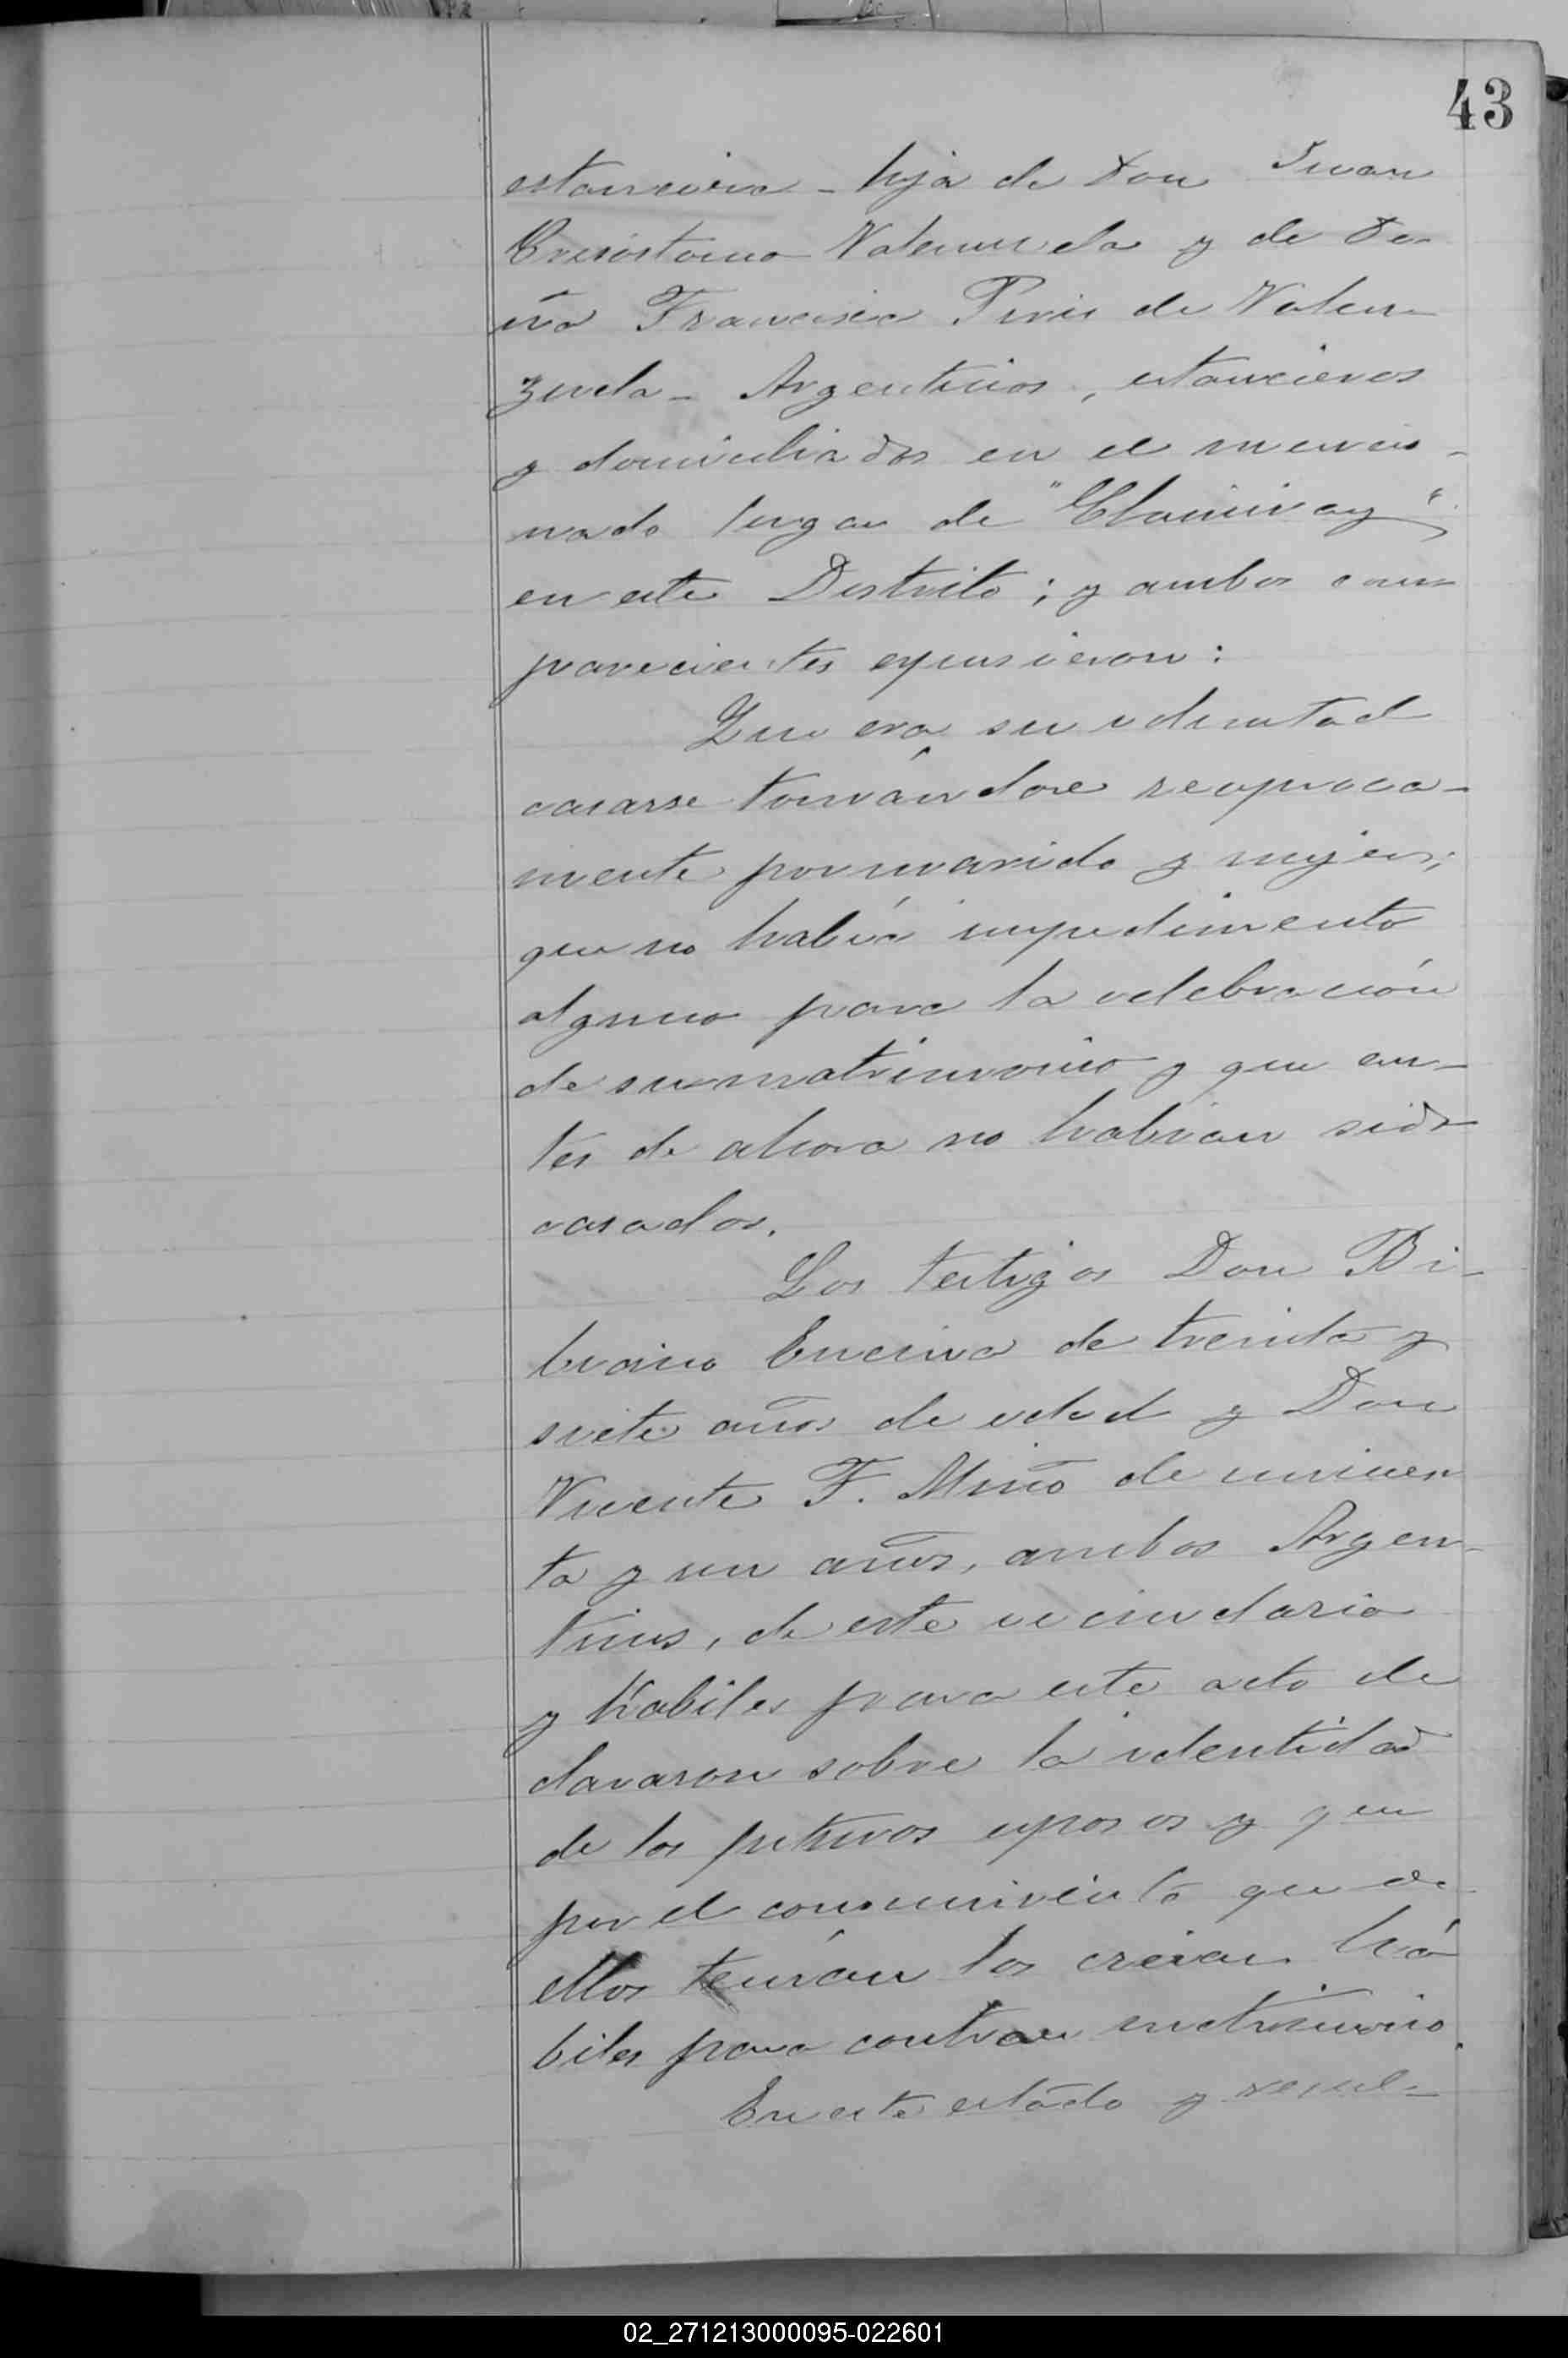 43
estanciera - hija de Don Juan
Crisóstomo Valenzuela y de Do-
ña Francisca Piris de Valen-
zuela - Argentinos, estancieros
y domiciliados en el mencio-
nado lugar de
en este Distrito; y ambos com-
parecientes expusieron:
Que era su voluntad
casarse tomándose reciproca-
mente por marido y mujer;
que no había impedimento
alguno para la celebración
de su matrimonio y que an-
tes de ahora no habian sido
casados.
Los testigos Don Bi-
biano Encina de treinta y
siete años de edad y Don
Vicente F. Miño de cincuen
ta y un años, ambos Argen-
tinos, de este vecindario
y hábiles para este acto de
clararon sobre la identidad
de los futuros esposos y que
por el conocimiento que de
ellos tenían los creian há
biles para contraer matrimonio.
En este estado y resul-
02_271213000095-022601